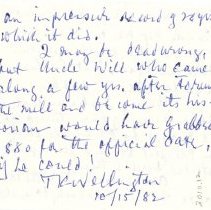 an impressive record
which it did.
I may be dead wrong,
but Uncle Will who came
along a few yrs. after
the mill and become its his-
torian would have grabbed
1880 for the official date,
if he could!
T K Wellington
10/15/82